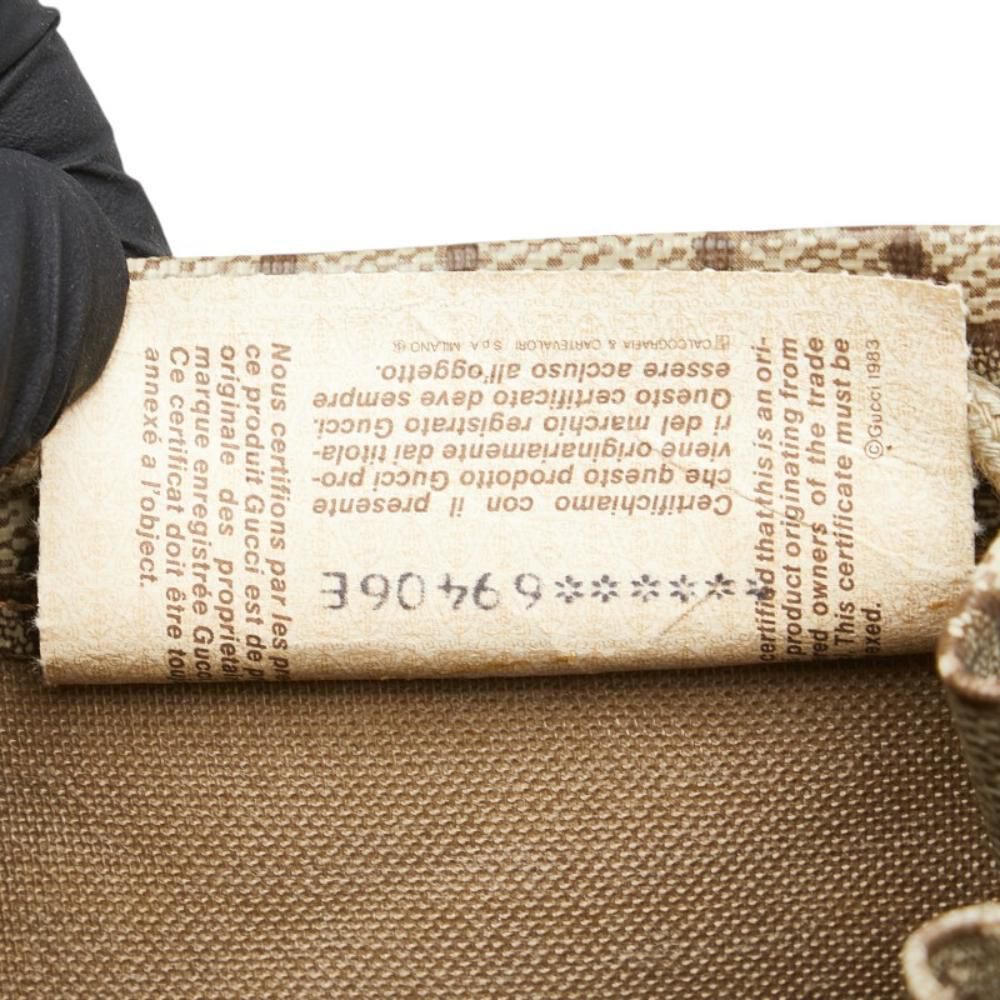 ******69406E
Certifichiamo con il presente
che questo prodotto Gucci pro-
viene originariamente dai titola-
ri del marchio registrato Gucci.
Questo certificato deve sempre
essere accluso all'oggetto.
CALCOGRAFIA & CARTEVALORI S.p.A. MILANO ®
Nous certifions par les pr
ce produit Gucci est de p
originale des proprietai
marque enregistrée Gucc
Ce certificat doit être tou
annexé a l'object.
certified that this is an ori-
product originating from
red owners of the trade
This certificate must be
exed. ©Gucci 1983